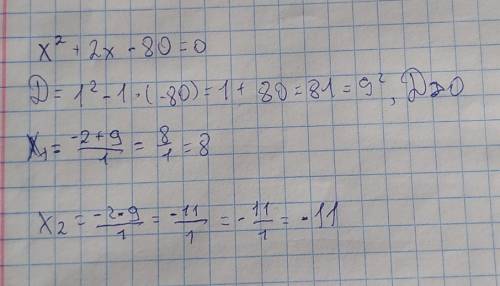 x² + 2x - 80 = 0
D = 1² - 1 · (-80) = 1 + 80 = 81 = 9², D>0
x₁ = (-2+9)/1 = 8/1 = 8
x₂ = (-2-9)/1 = -11/1 = -11/1 = -11